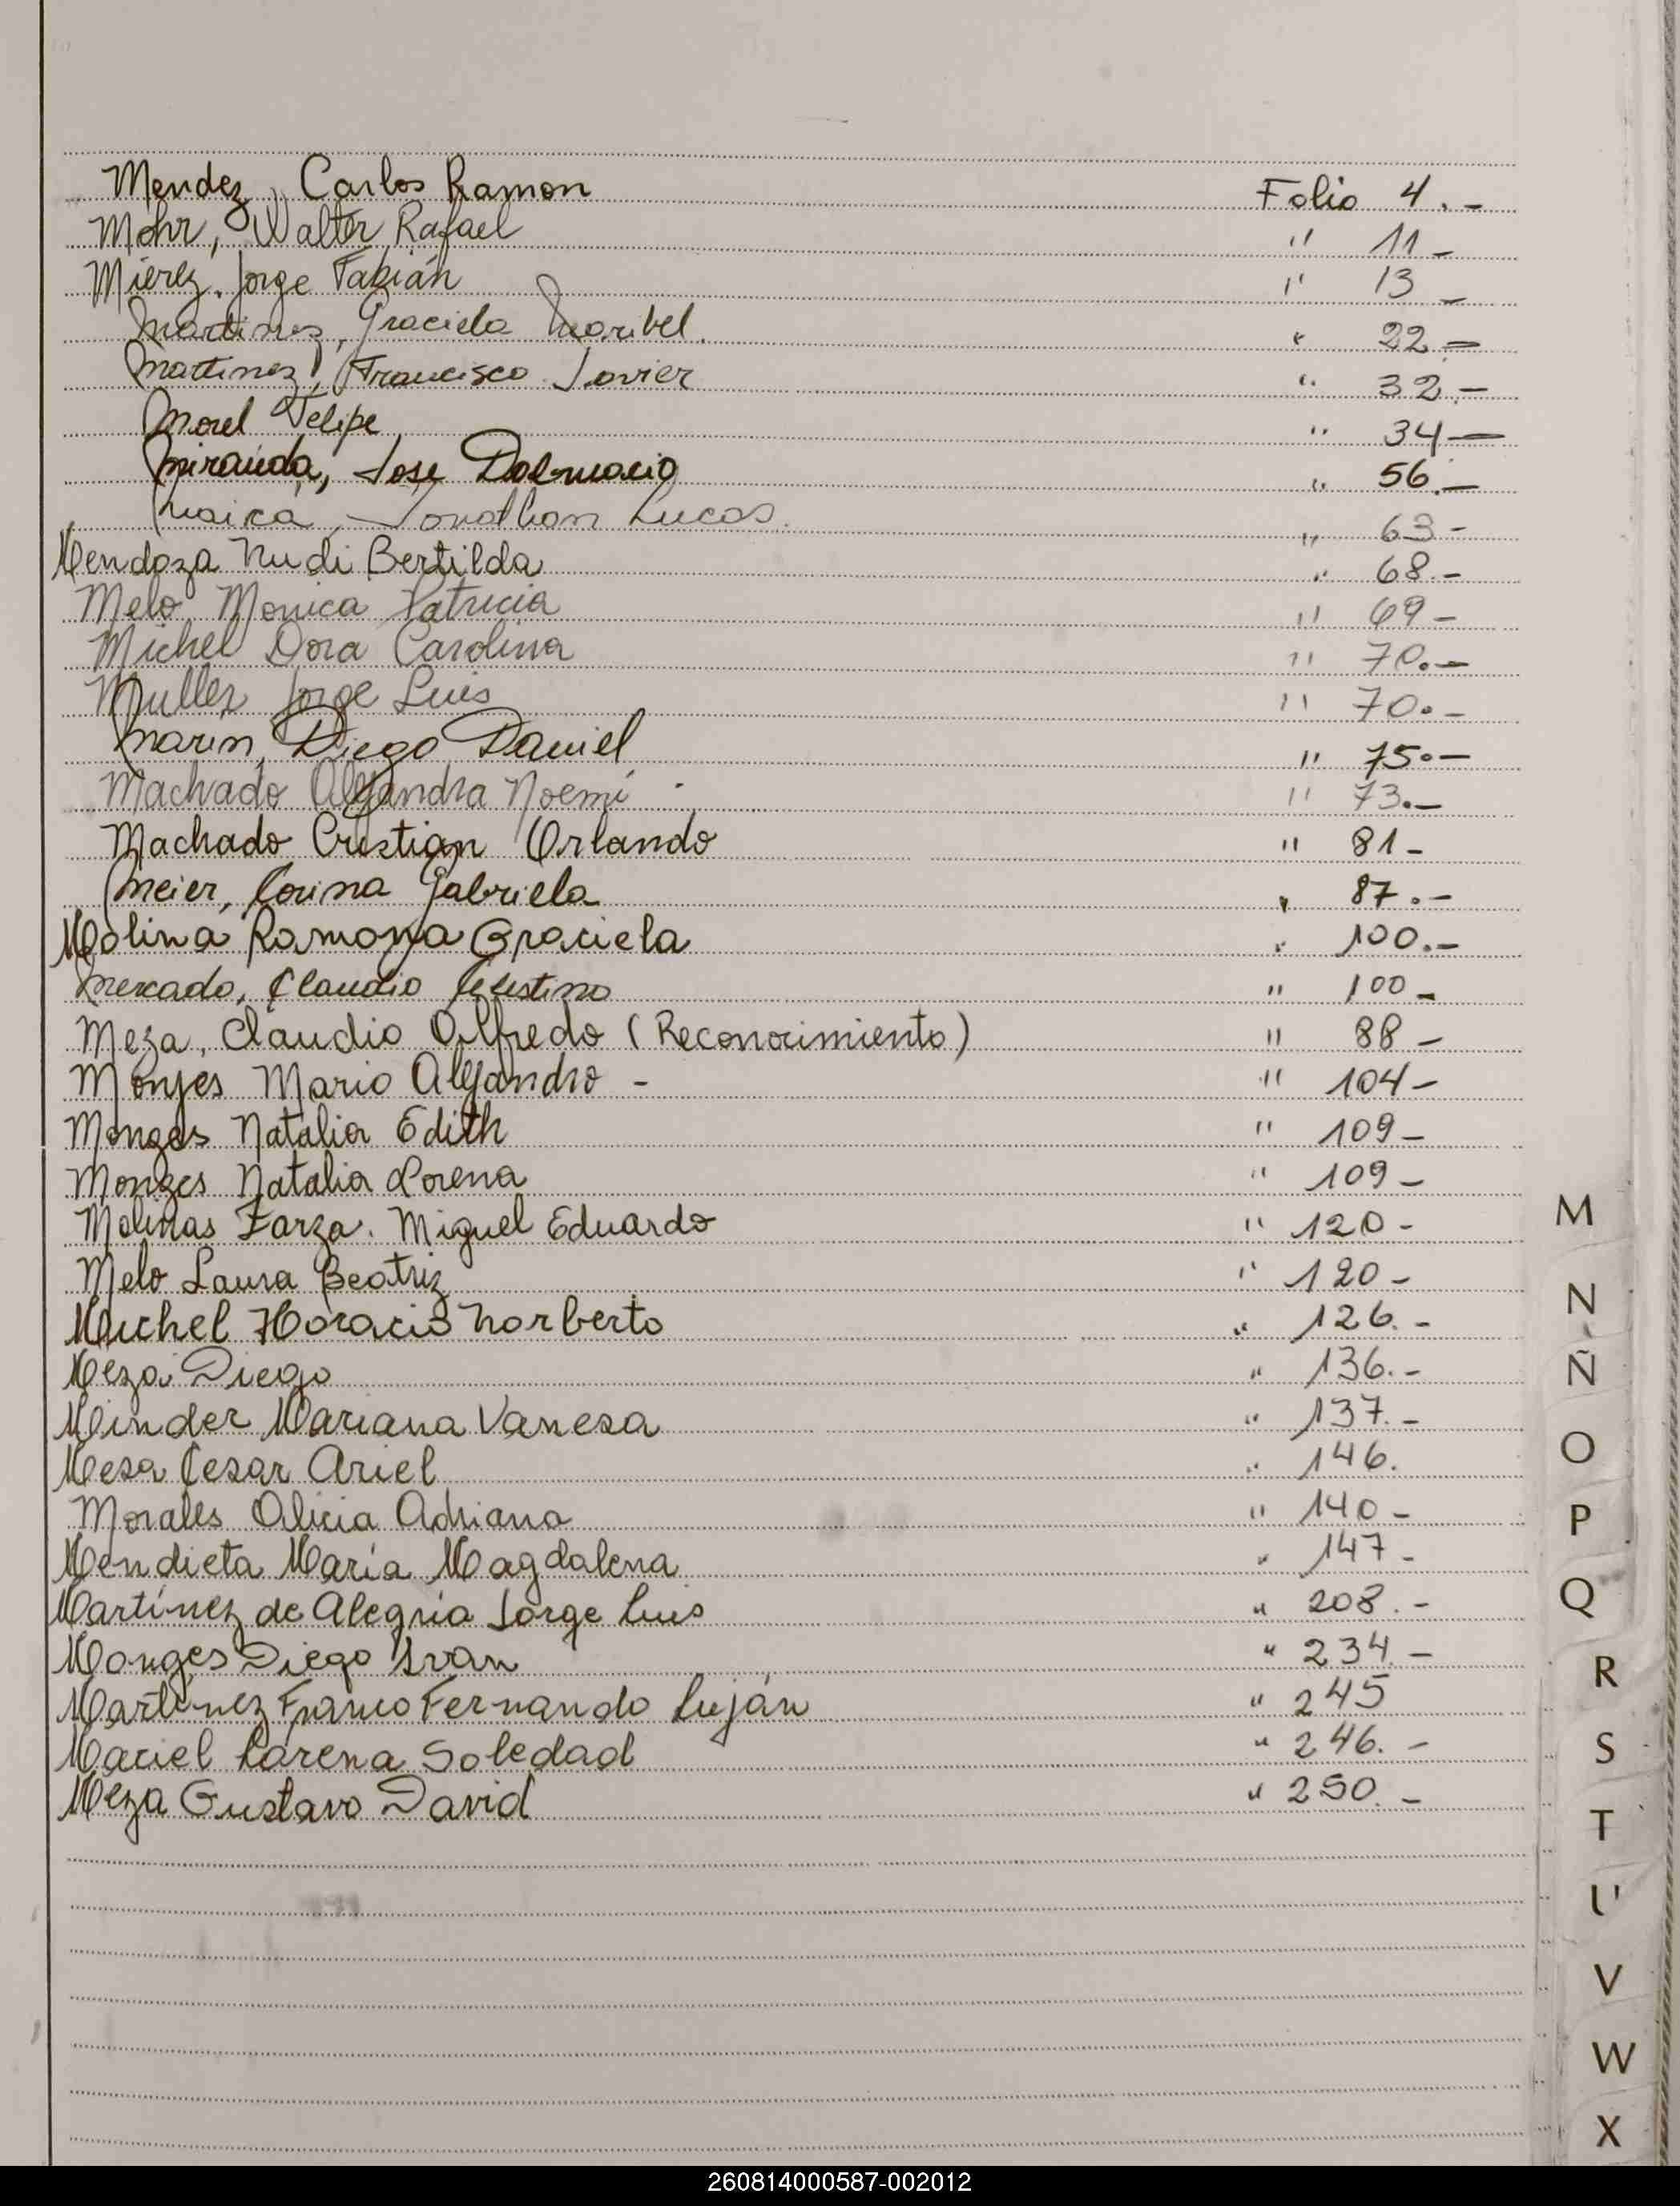 Mendez, Carlos Ramon Folio 4.-
Mohr, Walter Rafael " 11-
Mierez, Jorge Fabián " 13-
Martinez, Graciela Maribel. " 22-
Martinez, Francisco Javier " 32.-
Morel Felipe " 34-
Miranda, Jose Dalmacio " 56.-
Jonathan Lucas. " 63-
Mendoza Nudi Bertilda " 68.-
Melo Monica Patricia " 69-
Michel Dora Carolina " 70.-
Muller Jorge Luis " 70.-
Marin, Diego Daniel " 75.-
Machado Alejandra Noemí - " 73.-
Machado Cristian Orlando " 81-
Meier, Corina Gabriela " 87.-
Molina Ramona Graciela " 100.-
Mercado, Claudio Celestino " 100-
Meza, Claudio Alfredo (Reconocimiento) " 88-
Monjes Mario Alejandro - " 104-
Monges Natalia Edith " 109-
Monges Natalia Lorena " 109-
Molinas Farza. Miguel Eduardo " 120-
Melo Laura Beatriz " 120-
Michel Horacio Norberto " 126.-
Meza Diego " 136.-
Minder Mariana Vanesa " 137.-
Mesa Cesar Ariel " 146.
Morales Alicia Adriana " 140-
Mendieta María Magdalena " 147-
Martínez de Alegria Jorge Luis " 208.-
Monges Diego Ivan " 234.-
Martinez Franco Fernando Luján " 245
Maciel Lorena Soledad " 246.-
Meza Gustavo David " 250.-
M
N
Ñ
O
P
Q
R
S
T
U
V
W
X
260814000587-002012